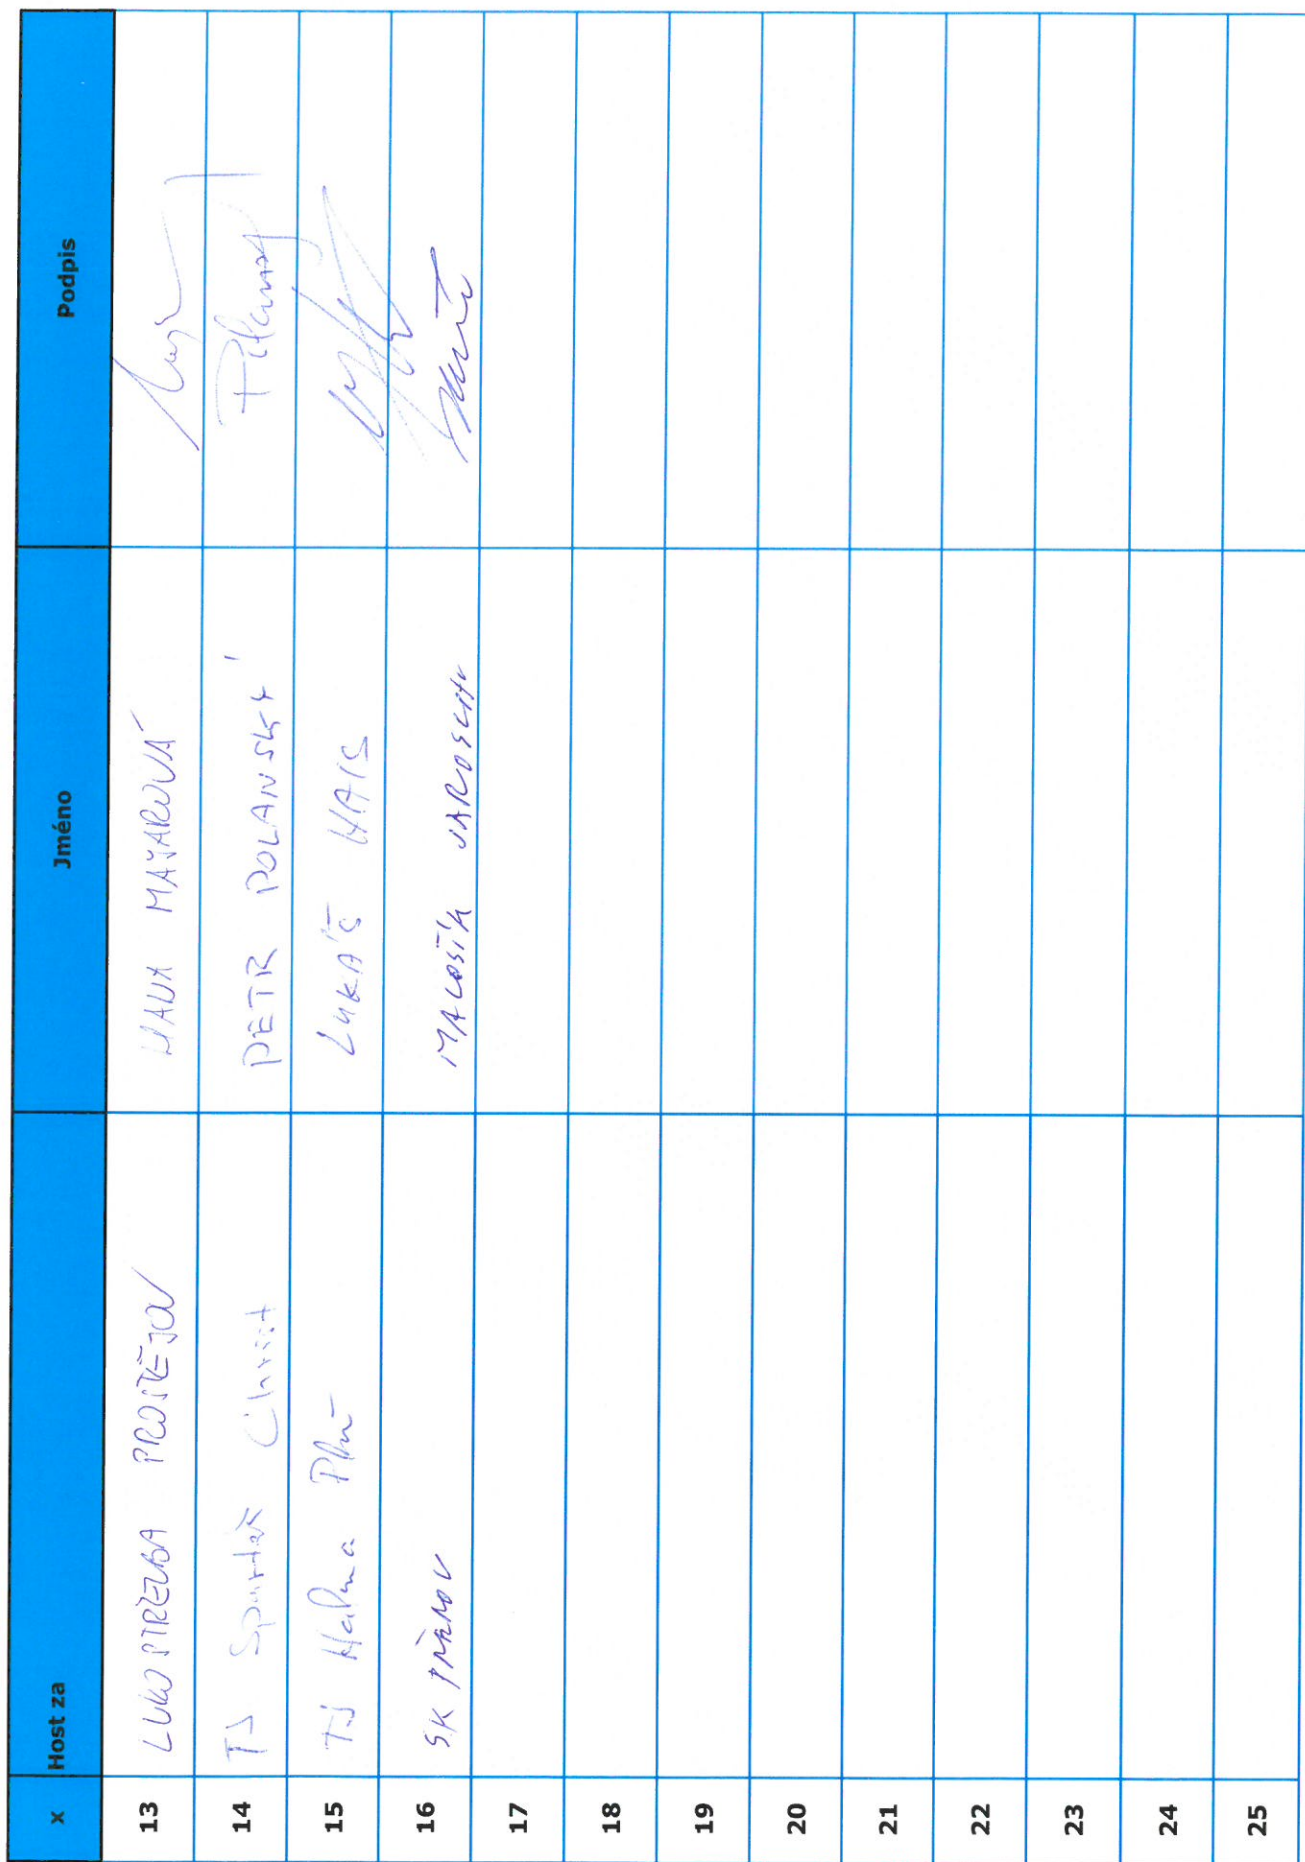 x Host za Jméno Podpis
13 LUKOSTŘELBA PROSTĚJOV HANA MAJAROVÁ
14 TJ Spartak Chrást PETR POLANSKÝ
15 TJ Halma LUKÁŠ HAIS
16 SK MALOŠÍK JAROSLAV
17
18
19
20
21
22
23
24
25